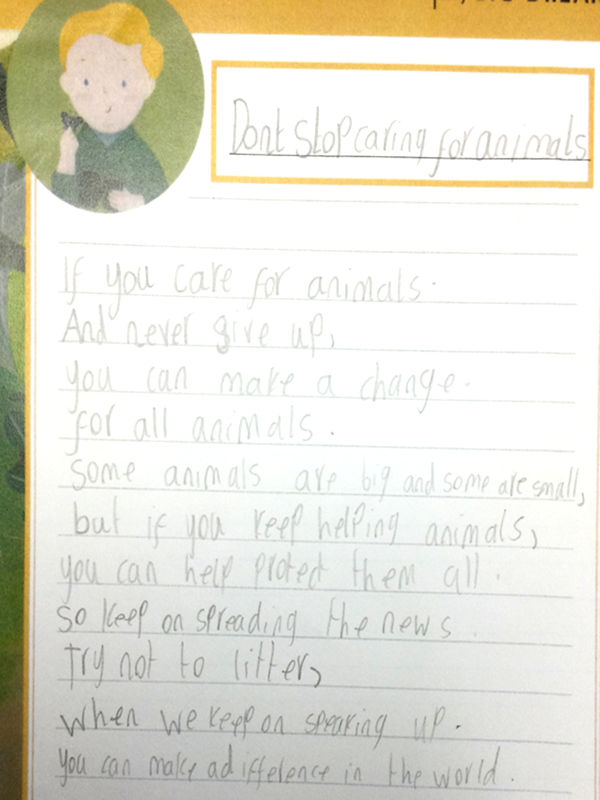 Dont stop caring for animals
If you care for animals.
And never give up,
you can make a change.
for all animals.
some animals are big and some are small,
but if you keep helping animals,
you can help protect them all.
so keep on spreading the news.
Try not to litter,
when we keep on speaking up.
you can make a difference in the world.